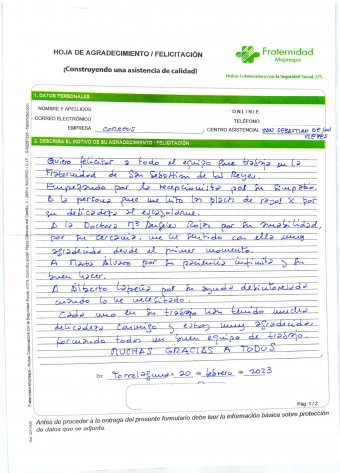 HOJA DE AGRADECIMIENTO / FELICITACIÓN
Fraternidad
Muprespa
¡Construyendo una asistencia de calidad!
Mutua Colaboradora con la Seguridad Social, 275
1. DATOS PERSONALES
NOMBRE Y APELLIDOS
D.N.I. / N.I.E.
CORREO ELECTRÓNICO
TELÉFONO
EMPRESA CORREOS CENTRO ASISTENCIAL SAN SEBASTIAN DE LOS REYES
2. DESCRIBA EL MOTIVO DE SU AGRADECIMIENTO / FELICITACIÓN
Quiero felicitar a todo el equipo que trabaja en la
Fraternidad de San Sebastian de los Reyes.
Empezando por la recepcionista por su Empatía.
A la persona que me hizo las placas de rayos X por
su delicadeza al
A la Doctora Mª Angeles Rojas por su amabilidad,
por su cercanía, me he sentido con ella muy
agradecida desde el primer momento.
A Marta Alvaro por su paciencia infinita y su
buen hacer.
A Alberto Lapeña por su ayuda desinteresada
cuando lo he necesitado.
Cada uno en su trabajo han tenido mucha
delicadeza conmigo y estoy muy agradecida,
formando todos un buen equipo de trabajo.
MUCHAS GRACIAS A TODOS
En Torrelaguna a 20 de febrero de 2023
Pág. 1 / 2
Antes de proceder a la entrega del presente formulario debe leer la información básica sobre protección
de datos que se adjunta.